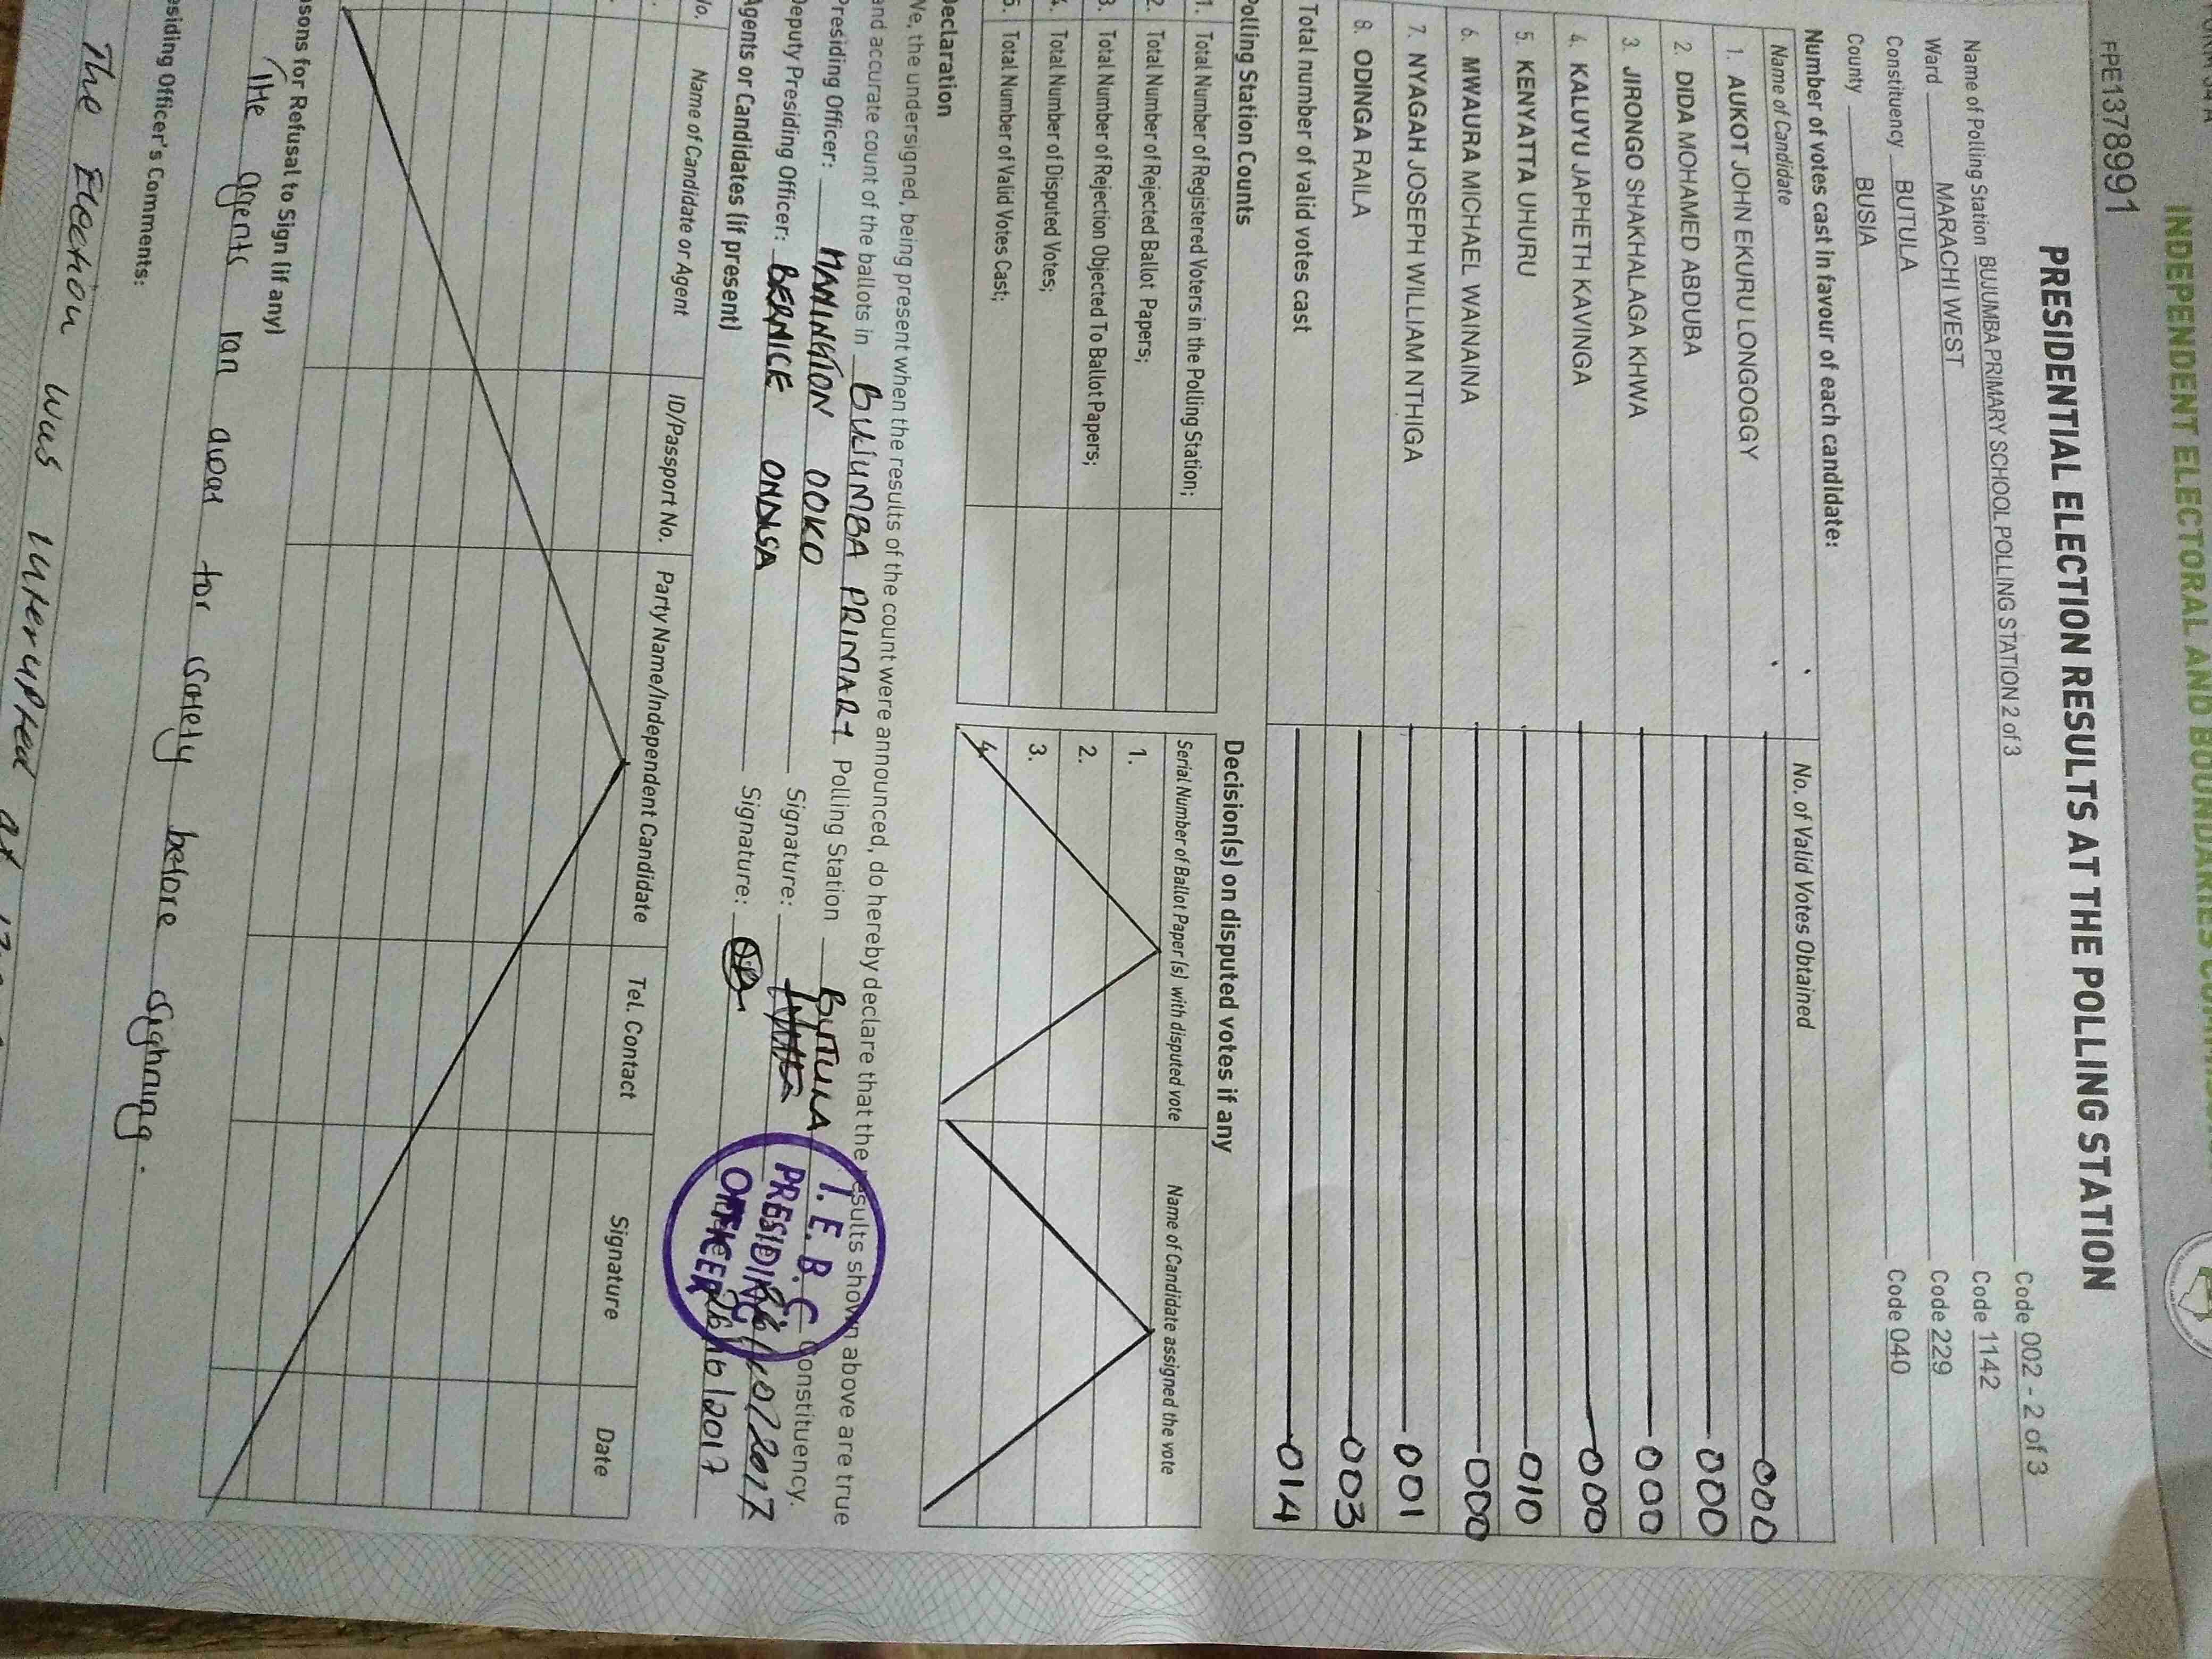 INDEPENDENT ELECTORAL AND BOUNDARIES
FPE1378991
PRESIDENTIAL ELECTION RESULTS AT THE POLLING STATION
Name of Polling Station BUJUMBA PRIMARY SCHOOL POLLING STATION 2 of 3 Code 002 - 2 of 3
Ward MARACHI WEST Code 1142
Constituency BUTULA Code 229
County BUSIA Code 040
Number of votes cast in favour of each candidate:
Name of Candidate No. of Valid Votes Obtained
1. AUKOT JOHN EKURU LONGOGGY 000
2. DIDA MOHAMED ABDUBA 000
3. JIRONGO SHAKHALAGA KHWA 000
4. KALUYU JAPHETH KAVINGA 000
5. KENYATTA UHURU 010
6. MWAURA MICHAEL WAINAINA 000
7. NYAGAH JOSEPH WILLIAM NTHIGA 001
8. ODINGA RAILA 003
Total number of valid votes cast 014
Polling Station Counts
1. Total Number of Registered Voters in the Polling Station;
2. Total Number of Rejected Ballot Papers;
3. Total Number of Rejection Objected To Ballot Papers;
4. Total Number of Disputed Votes;
5. Total Number of Valid Votes Cast;
Decision(s) on disputed votes if any
Serial Number of Ballot Paper (s) with disputed vote Name of Candidate assigned the vote
1.
2.
3.
4.
Declaration
We, the undersigned, being present when the results of the count were announced, do hereby declare that the results shown above are true
and accurate count of the ballots in BUJUMBA PRIMARY Polling Station BUTULA Constituency.
Presiding Officer: MANINGTON OOKO Signature: 26/10/2017
Deputy Presiding Officer: BERNICE Signature: 26/10/2017
I.E.B.C
PRESIDING
OFFICER
Agents or Candidates (if present)
No. Name of Candidate or Agent ID/Passport No. Party Name/Independent Candidate Tel. Contact Signature Date
sons for Refusal to Sign (if any)
The agents ran away for safety before sighning.
esiding Officer's Comments:
The Election was interupted at